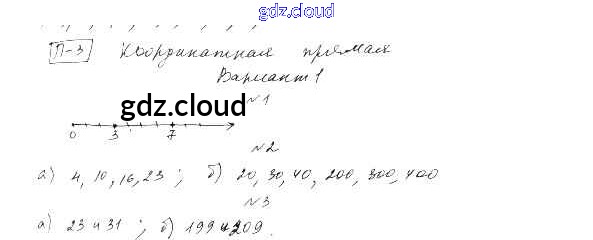 gdz.cloud
П-3 Координатная прямая
Вариант 1
№1
gdz.cloud
0 3 7
№2
а) 4, 10, 16, 23 ; б) 20, 30, 40, 200, 300, 400
№3
а) 23 и 31 ; б) 199 и 209.
gdz.cloud